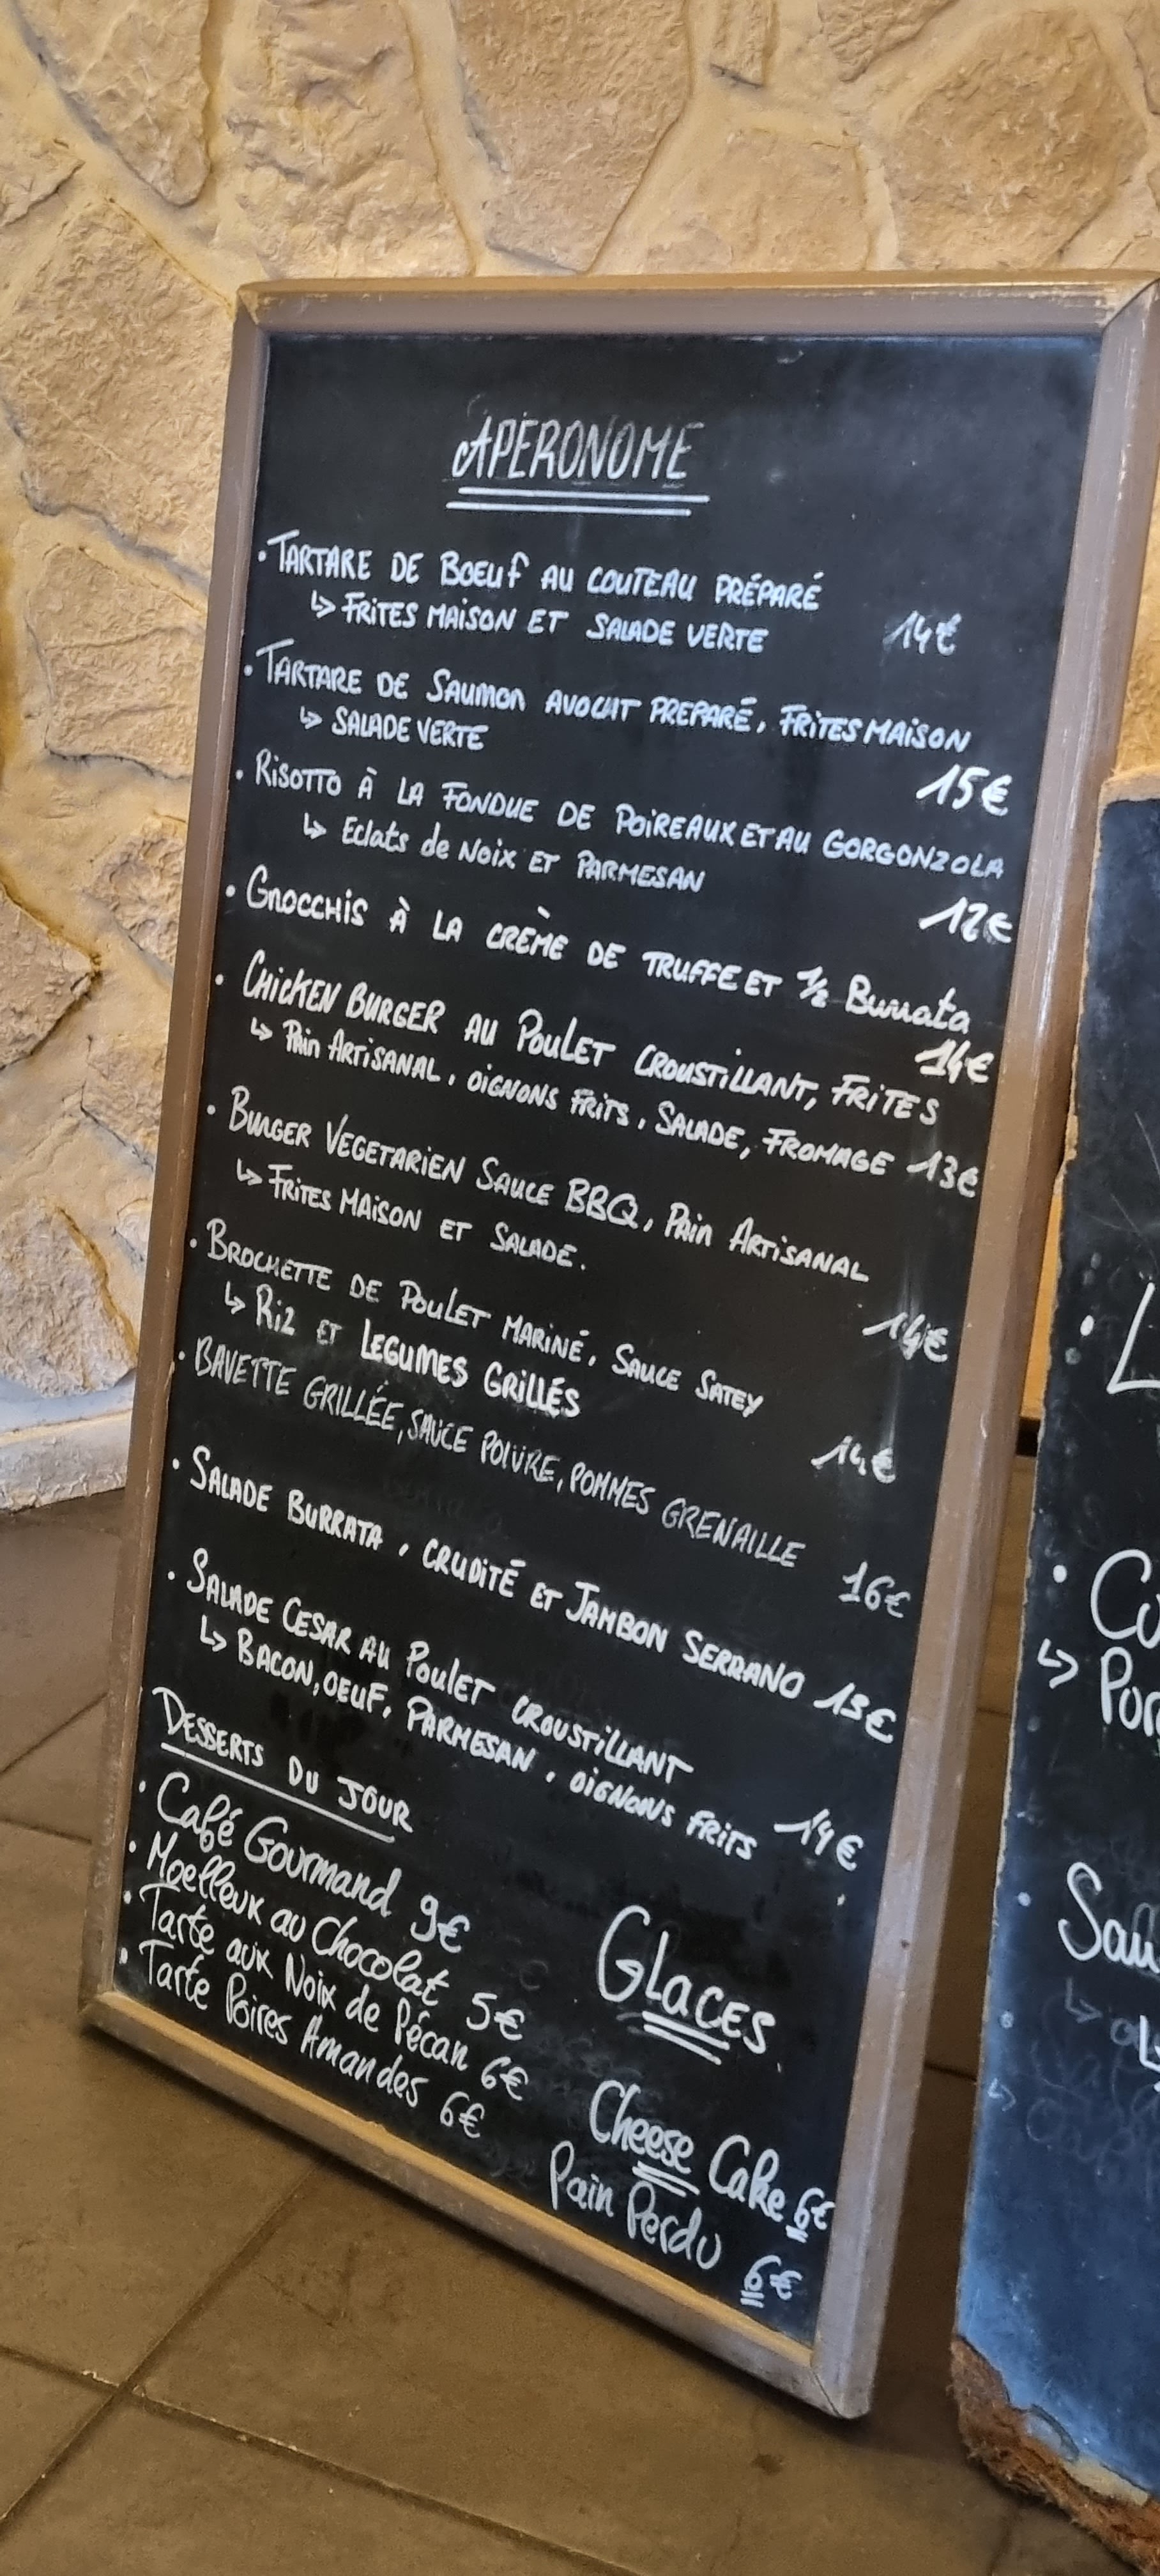 APERONOME
• TARTARE DE BOEUF AU COUTEAU PRÉPARÉ
↳ FRITES MAISON ET SALADE VERTE 14€
• TARTARE DE SAUMON AVOCAT PREPARÉ, FRITES MAISON
↳ SALADE VERTE 15€
• RISOTTO À LA FONDUE DE POIREAUX ET AU GORGONZOLA
↳ Eclats de NOIX ET PARMESAN 12€
• GNOCCHIS À LA CRÈME DE TRUFFE ET 1/2 Burrata
14€
• CHICKEN BURGER AU POULET CROUSTILLANT, FRITES
↳ PAIN ARTISANAL, OIGNONS FRITS, SALADE, FROMAGE 13€
• BURGER VEGETARIEN SAUCE BBQ, PAIN ARTISANAL
↳ FRITES MAISON ET SALADE. 14€
• BROCHETTE DE POULET MARINÉ, SAUCE SATEY
↳ RIZ ET LEGUMES GRILLÉS 14€
• BAVETTE GRILLÉE, SAUCE POIVRE, POMMES GRENAILLE 16€
• SALADE BURRATA, CRUDITÉ ET JAMBON SERRANO 13€
• SALADE CESAR AU POULET CROUSTILLANT
↳ BACON, OEUF, PARMESAN, OIGNONS FRITS 14€
DESSERTS DU JOUR
• Café Gourmand 9€
• Moelleux au Chocolat 5€
• Tarte aux Noix de Pécan 6€
• Tarte Poires Amandes 6€
GLACES
Cheese Cake 6€
Pain Perdu 6€